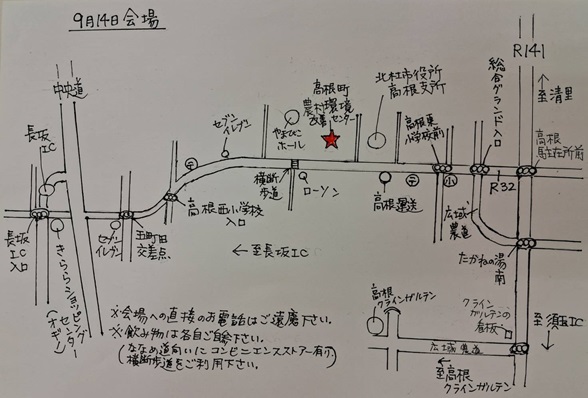 9月14日会場
R141
中央道
長坂
IC
長坂
IC
入口
きららショッピング
センター
(オギノ)
セブン
イレブン
五町田
交差点
セブン
イレブン
〒
高根西小学校
入口
やまびこ
ホール
横断
歩道
ローソン
高根町
農村環境
改善センター
北杜市役所
高根支所
高根運送
〒
高根東
小学校前
小
総合グランド入口
R32
至清里
高根
駐在所前
広域
農道
たかねの湯
南
←至長坂IC
高根
クラインガルテン
クライン
ガルテンの
看板
至須玉IC
広域農道
←
至高根
クラインガルテン
※会場への直接のお電話はご遠慮下さい。
※飲み物は各自ご自参下さい。
(ななめ道向いにコンビニエンスストアー有り。
横断歩道をご利用下さい。)